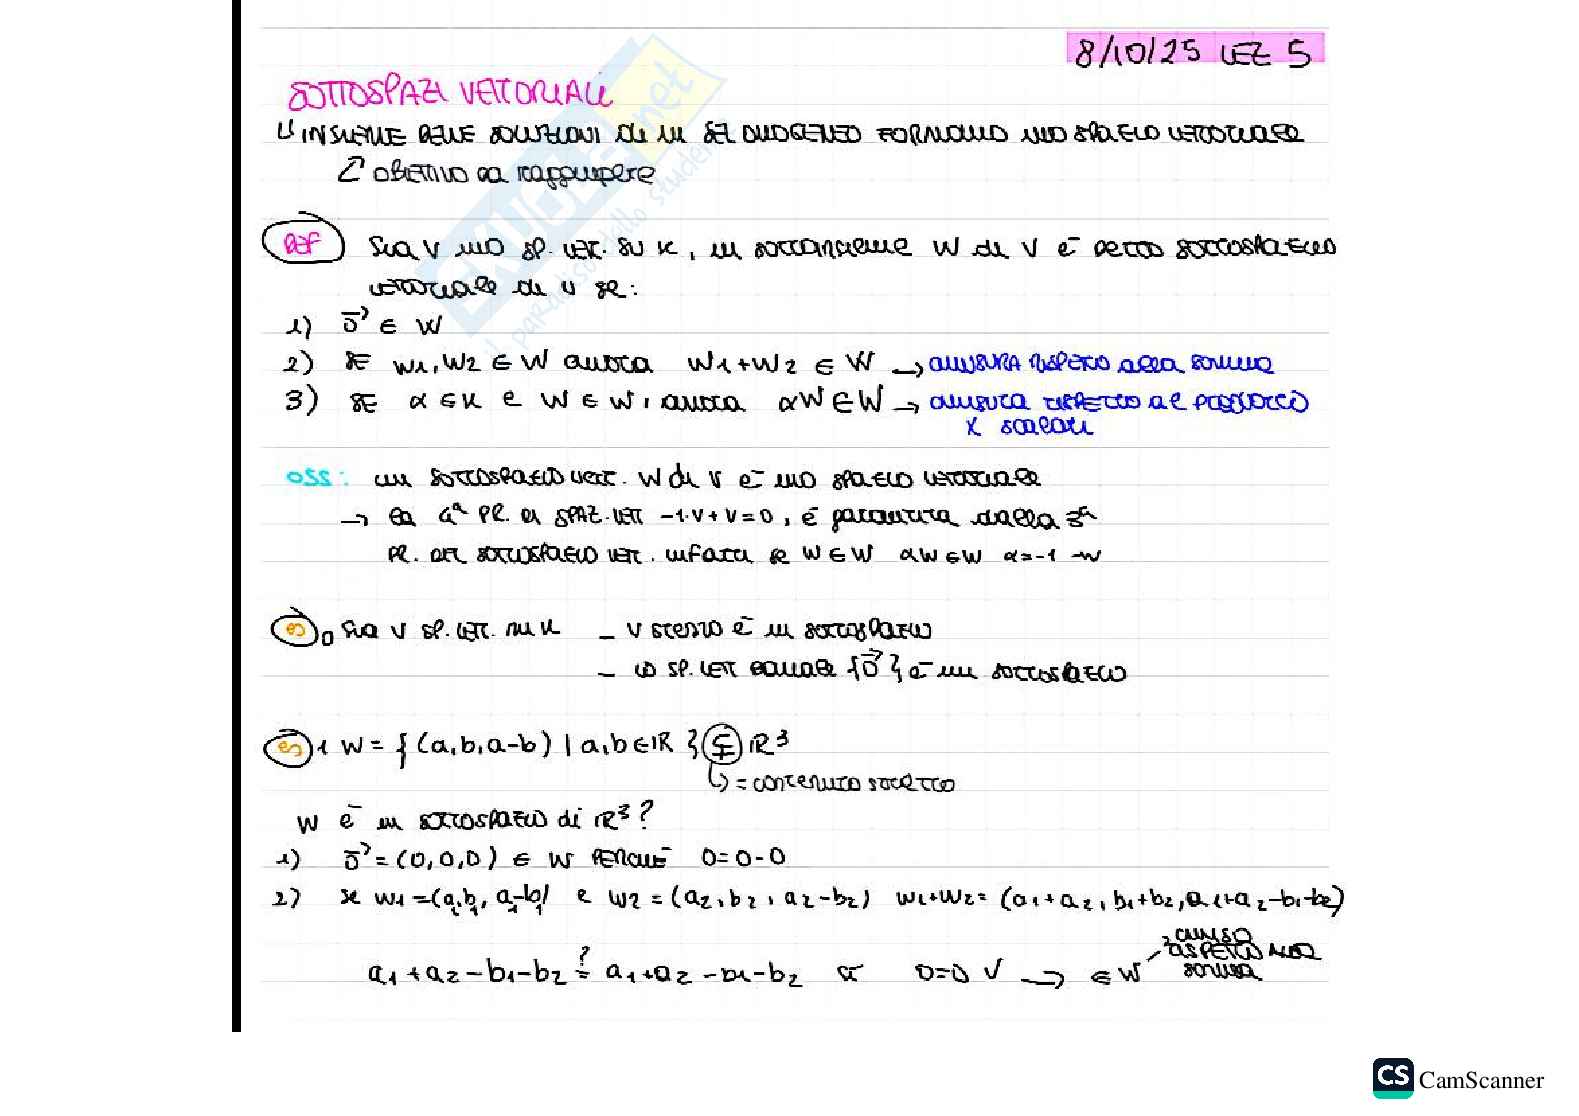 8/10/25 LEZ 5
SOTTOSPAZI VETTORIALI
↳ INSIEME DELLE SOLUZIONI di un SEL OMOGENEO FORMANO uno SPAZIO VETTORIALE
↳ OBIETTIVO da raggiungere
DEF Sia V uno SP. VET. SU K, un sottoinsieme W di V è DETTO SOTTOSPAZIO
VETTORIALE di V se:
1) 0⃗ ∈ W
2) SE W1, W2 ∈ W allora W1+W2 ∈ W → CHIUSURA RISPETTO alla somma
3) SE α ∈ K e W ∈ W, allora αW ∈ W → chiusura RISPETTO al PRODOTTO
x scalari
OSS: un SOTTOSPAZIO VETT. W di V è uno SPAZIO VETTORIALE
→ la 4ª PR. di SPAZ. VETT -1·V+V=0, è garantita dalla 3ª
PR. DEL SOTTOSPAZIO VET. infatti se W∈W αW∈W α=-1 -W
es 0 Sia V SP. VET. su K - V stesso è un sottospazio
- lo SP. VET banale {0⃗} è un SOTTOSPAZIO
es 1 W = {(a,b,a-b) | a,b∈ℝ} ⊊ ℝ³
↳ = contenuto stretto
W è un SOTTOSPAZIO di ℝ³?
1) 0⃗ = (0,0,0) ∈ W PERCHÉ 0=0-0
2) se W1 = (a1,b1, a1-b1) e W2 = (a2,b2, a2-b2) W1+W2 = (a1+a2, b1+b2, a1+a2-b1-b2)
a1+a2-b1-b2 ?= a1+a2-b1-b2 sì 0=0 √ → ∈W
chiuso
RISPETTO alla
somma
EKUOEI.net
il paradiso dello studente
CS CamScanner